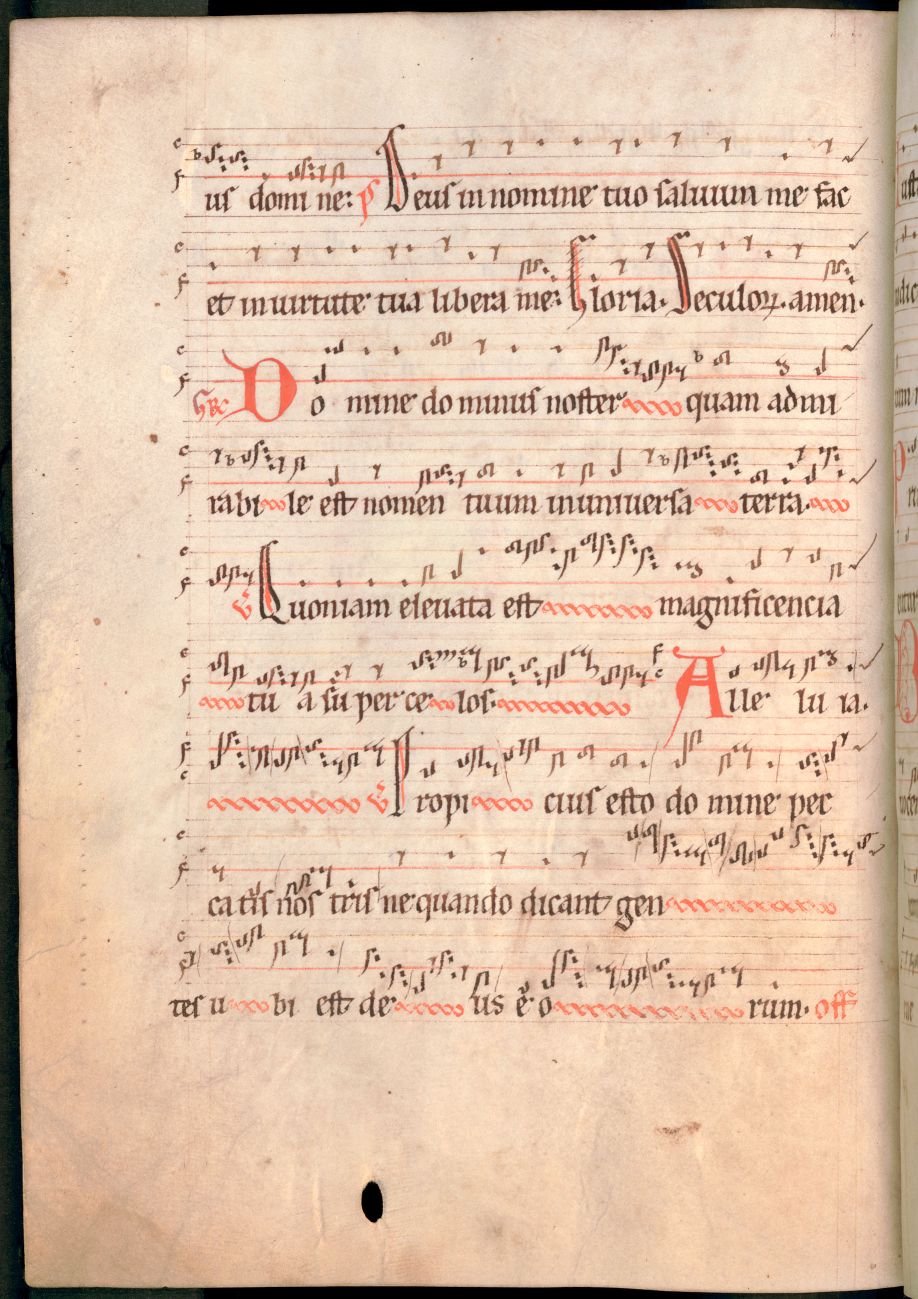 us domi ne: ps Deus in nomine tuo saluum me fac
et in uirtute tua libera me: Gloria. Seculoꝝ. amen.
Gr̄ Do mine do minus noster quam admi
rabi le est nomen tuum in uniuersa terra.
V̄ Quoniam eleuata est magnificencia
tu a su per ce los. Alle lu ia.
V̄ Propi cius esto do mine pec
catis nos tris ne quando dicant gen
tes u bi est de us eo rum. off̄